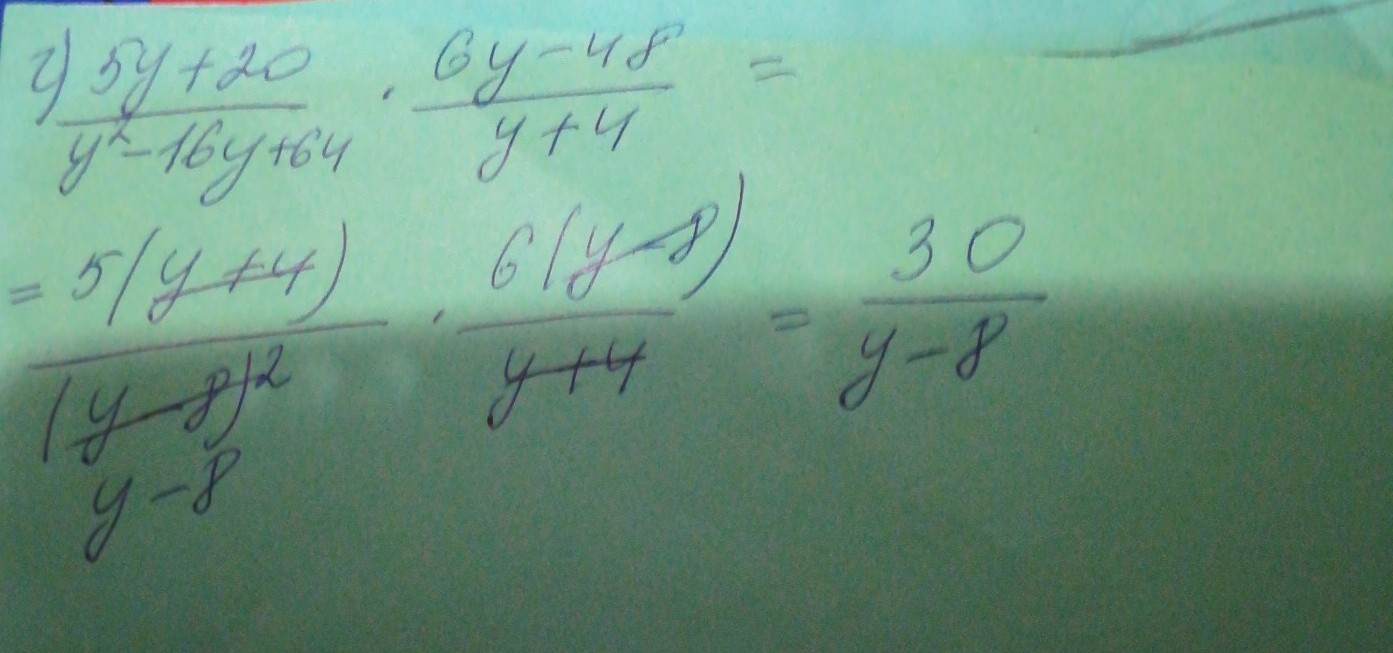 г) 5y+20 / y²-16y+64 · 6y-48 / y+4 =
= 5(y+4) / (y-8)² · 6(y-8) / y+4 = 30 / y-8
y-8